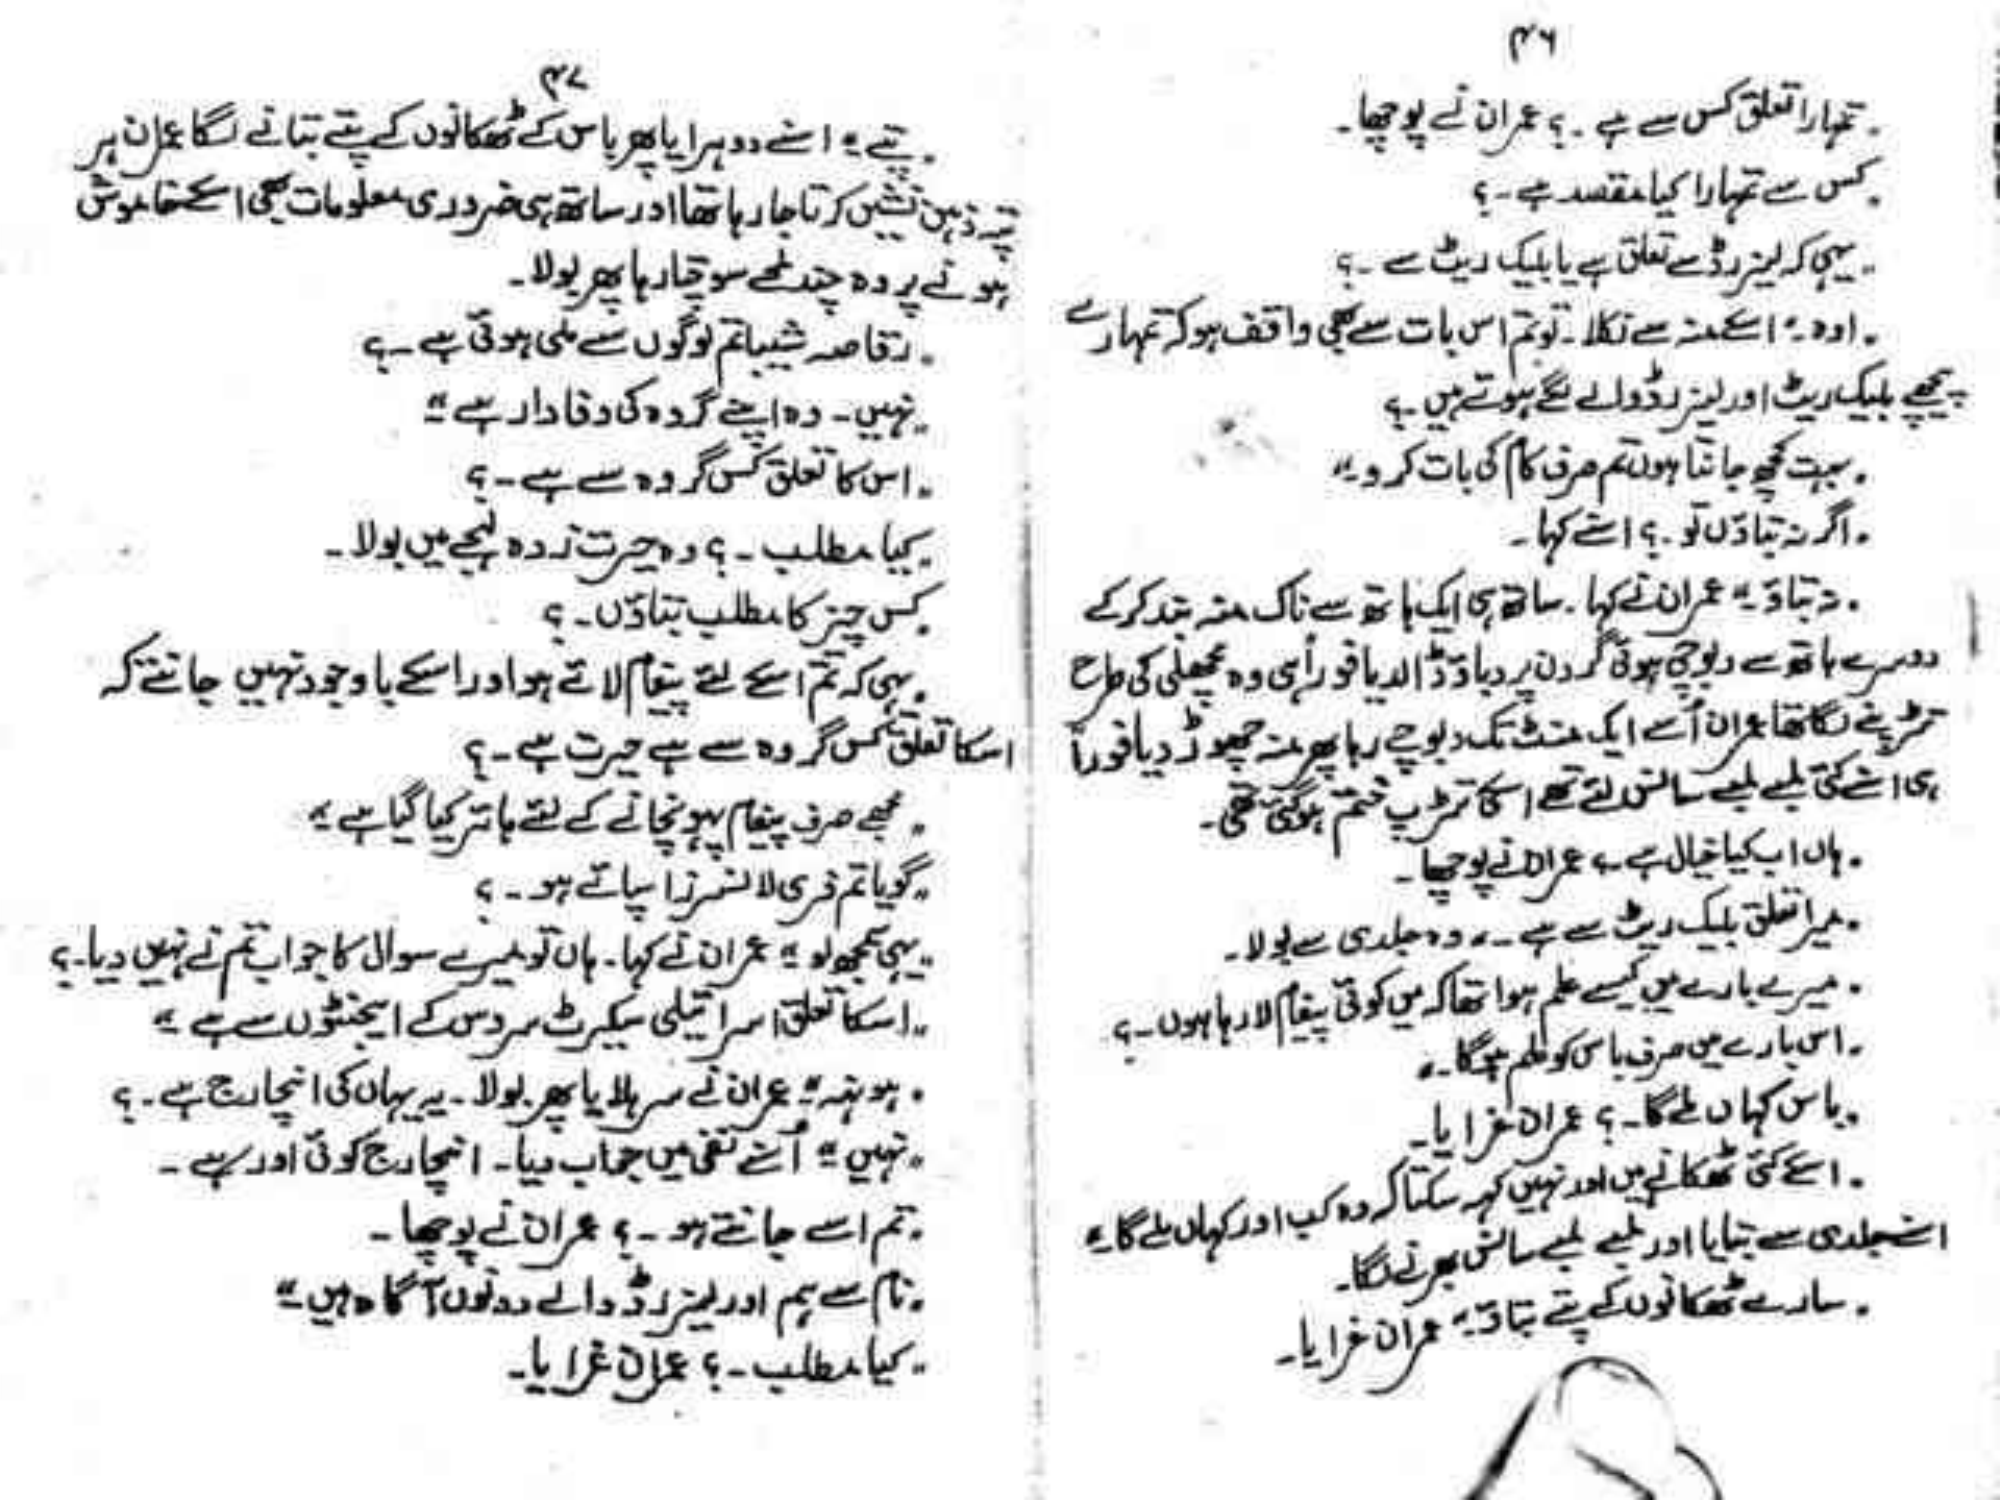 ۴۶
"تمہارا تعلق کس سے ہے۔؟ عمران نے پوچھا۔
"کس سے تمہارا کیا مقصد ہے۔؟
"یہی کہ لیزرڈ سے تعلق ہے یا بلیک ریٹ سے۔؟
"اوہ۔" اسکے منہ سے نکلا۔ تو تم اس بات سے بھی واقف ہو کہ تمہارے
پیچھے بلیک ریٹ اور لیزرڈ والے لگے ہوئے ہیں۔؟
"بہت کچھ جانتا ہوں تم صرف کام کی بات کرو۔"
"اگر نہ بتاؤں تو۔؟ اسنے کہا۔
"نہ بتاؤ۔" عمران نے کہا۔ ساتھ ہی ایک ہاتھ سے ناک منہ بند کر کے
دوسرے ہاتھ سے دبوچی ہوئی گردن پر دباؤ ڈالدیا فوراً ہی وہ مچھلی کی طرح
تڑپنے لگا تھا عمران اُسے ایک منٹ تک دبوچے رہا پھر منہ چھوڑ دیا فوراً
ہی اسنے کئی لمبے لمبے سانس لئے تھے اسکی تڑپ ختم ہو گئی تھی۔
"ہاں اب کیا خیال ہے؟ عمران نے پوچھا۔
"میرا تعلق بلیک ریٹ سے ہے۔" وہ جلدی سے بولا۔
"میرے بارے میں کیسے علم ہوا تھا کہ میں کوئی پیغام لا رہا ہوں۔؟
"اس بارے میں صرف باس کو علم ہوگا۔"
"باس کہاں ملے گا۔؟ عمران غرایا۔
"اسکے کئی ٹھکانے ہیں اور نہیں کہہ سکتا کہ وہ کب اور کہاں ملے گا۔"
اسنے جلدی سے بتایا اور لمبے لمبے سانس بھرنے لگا۔
"سارے ٹھکانوں کے پتے بتاؤ۔" عمران غرایا۔
۴۷
"پتے۔" اسنے دوہرایا پھر باس کے ٹھکانوں کے پتے بتانے لگا عمران ہر
پتہ ذہن نشیں کرتا جا رہا تھا اور ساتھ ہی ضروری معلومات بھی اسکے خاموش
ہونے پر وہ چند لمحے سوچتا رہا پھر بولا۔
"رقاصہ شیبا تم لوگوں سے ملی ہوئی ہے۔؟
"نہیں۔ وہ اپنے گروہ کی وفادار ہے۔"
"اس کا تعلق کس گروہ سے ہے۔؟
"کیا مطلب۔؟ وہ حیرت زدہ لہجے میں بولا۔
"کس چیز کا مطلب بتاؤں۔؟
"یہی کہ تم اسکے لئے پیغام لائے ہو اور اسکے باوجود نہیں جانتے کہ
اسکا تعلق کس گروہ سے ہے حیرت ہے۔؟
"مجھے صرف پیغام پہونچانے کے لئے ہائر کیا گیا ہے۔"
"گویا تم فری لانسرز اسپائے ہو۔؟
"یہی سمجھ لو۔" عمران نے کہا۔ ہاں تو میرے سوال کا جواب تم نے نہیں دیا۔؟
"اسکا تعلق اسرائیلی سیکرٹ سروس کے ایجنٹوں سے ہے۔"
"ہونہہ۔" عمران نے سر ہلایا پھر بولا۔ یہ یہاں کی انچارج ہے۔؟
"نہیں۔" اُسنے نفی میں جواب دیا۔ انچارج کوئی اور ہے۔
"تم اسے جانتے ہو۔؟ عمران نے پوچھا۔
"نام سے ہم اور لیزرڈ والے دونوں آگاہ ہیں۔"
"کیا مطلب۔؟ عمران غرایا۔